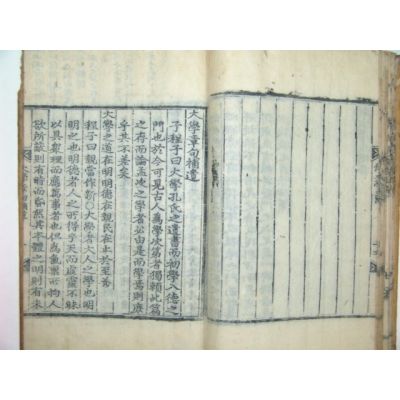 大學章句補遺
子程子曰大學孔氏之遺書而初學入德之
門也於今可見古人爲學次第者獨賴此篇
之存而論孟次之學者必由是而學焉則庶
乎其不差矣
大學之道在明明德在親民在止於至善
程子曰親當作新○大學者大人之學也明
明之也明德者人之所得乎天而虛靈不昧
以具衆理而應萬事者也但爲氣稟所拘人
欲所蔽則有時而昏然其本體之明則有未